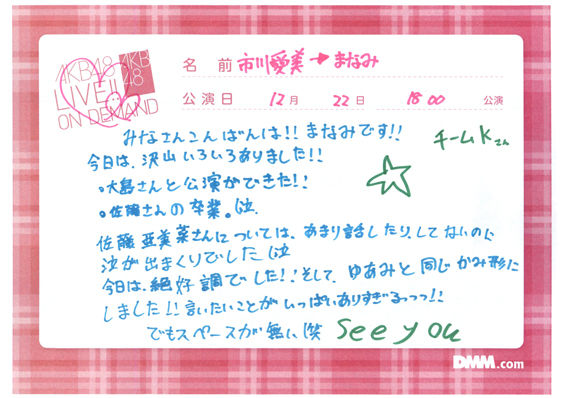 AKB48
LIVE!!
ON DEMAND
AKB
48
名 前 市川愛美→まなみ
公演日 12月 22日 18:00 公演
みなさんこんばんは!! まなみです!!
チームKさん
今日は、沢山いろいろありました!!
・大島さんと公演ができた!!
・佐藤さんの卒業。泣
佐藤亜美菜さんについては、あまり話したり、してないのに
泣が出まくりでした泣
今日は、絶好調でした!!そして、ゆあみと同じかみ形に
しました!!言いたいことがいっぱいありすぎるっっっ!!
でもスペースが無い笑 See you
DMM.com